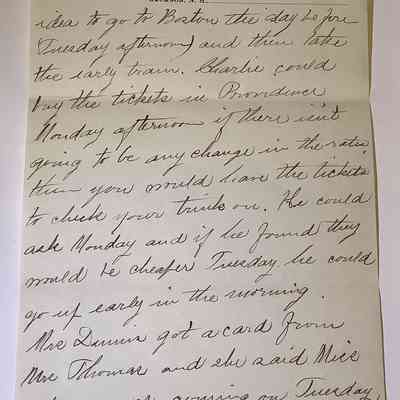 idea to go to Boston the day before
(Tuesday afternoon) and then take
the early train. Charlie could
buy the tickets in Providence
Monday afternoon if there isn't
going to be any change in the rates
then you would have the tickets
to check your trunk on. He could
ask Monday and if he found they
would be cheaper Tuesday he could
go up early in the morning.
Mrs got a card from
Mrs Thomas and she said Miss
coming on Tuesday